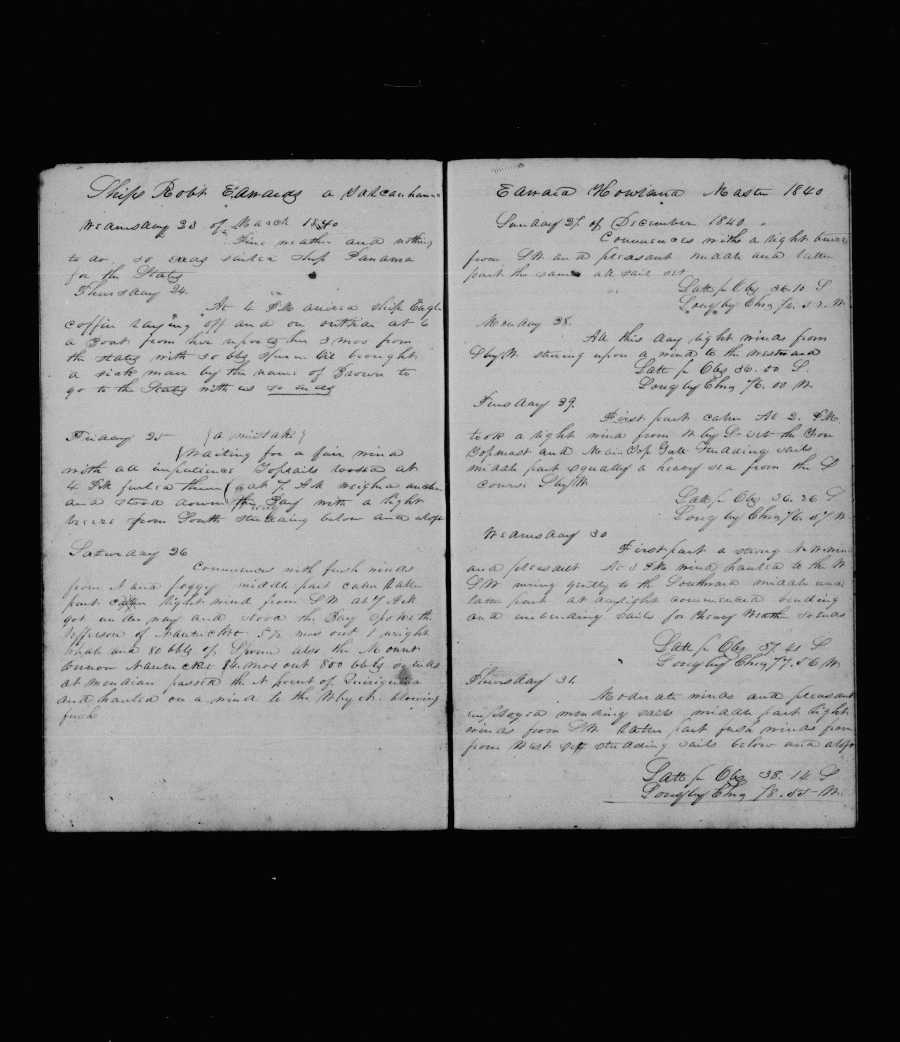 Ships Robt Edwards a Talcauhano
Wednsday 23 of March 1840
Fine weather and nothing
to do. so ends sailed ship Panama
for the States
Thursday 24.
At 4 PM arived ship Eagle
Coffin laying off and on outside at 6
a Boat from her reports her 3 mos from
the states with 30 bbls Sperm Oil brought
a sick man by the name of Brown to
go to the States with us so ends
Friday 25 (a mistake)
Waiting for a fair wind
with all impatience Topsails loosed at
4 PM furled them at 7 AM weighed anchor
and stood down the Bay with a light
breeze from South studding below and aloft
Saturday 26
Commences with fresh winds
from N and foggy middle part calm Latter
part calm light wind from SW at 7 AM
got under way and stood the Bay spoke the
Jefferson of Nantucket 5 1/2 mos out 1 wright
whale and 80 bbls of Sperm also the Mount
Vernon Nantucket 34 mos out 800 bbls so ends
at meridian passed the N point of Quiriquina
and hauled on a wind to the W by N. blowing
fresh
Edward Howland Master 1840
Sunday 27 of December 1840
Commences with a light breeze
from SW and pleasant middle and latter
part the same all sail set
Latt pr Obs 36.10 S
Long by Chrg 74.52 W.
Monday 28.
All this day light winds from
S by W stering upon a wind to the westward
Latt pr Obs 36.00 S.
Long by Chrg 76.00 W.
Tuesday 29.
First part calm At 2. PM
took a light wind from W by S set the Fore
Topmast and Main Top Gale Studding sails
middle part squally a heavy sea from the S
course S by W
Latt pr Obs 36.26 S.
Long by Chrg 76.57 W
Wednsday 30
First part a strong N W wind
and pleasant At 3 PM wind hauled to the W
SW wring gently to the Southward middle and
latter part at daylight commenced bending
and unbending sails for heavy Weath so ends
Latt pr Obs 37.41 S
Long by Chrg 77.56 W.
Thursday 31.
Moderate winds and pleasant
employed mending sails middle part light
winds from SW Latter part fresh winds from
from West set studding sails below and aloft
Latt pr Obs 38.14 S
Long by Chrg 78.55 W.